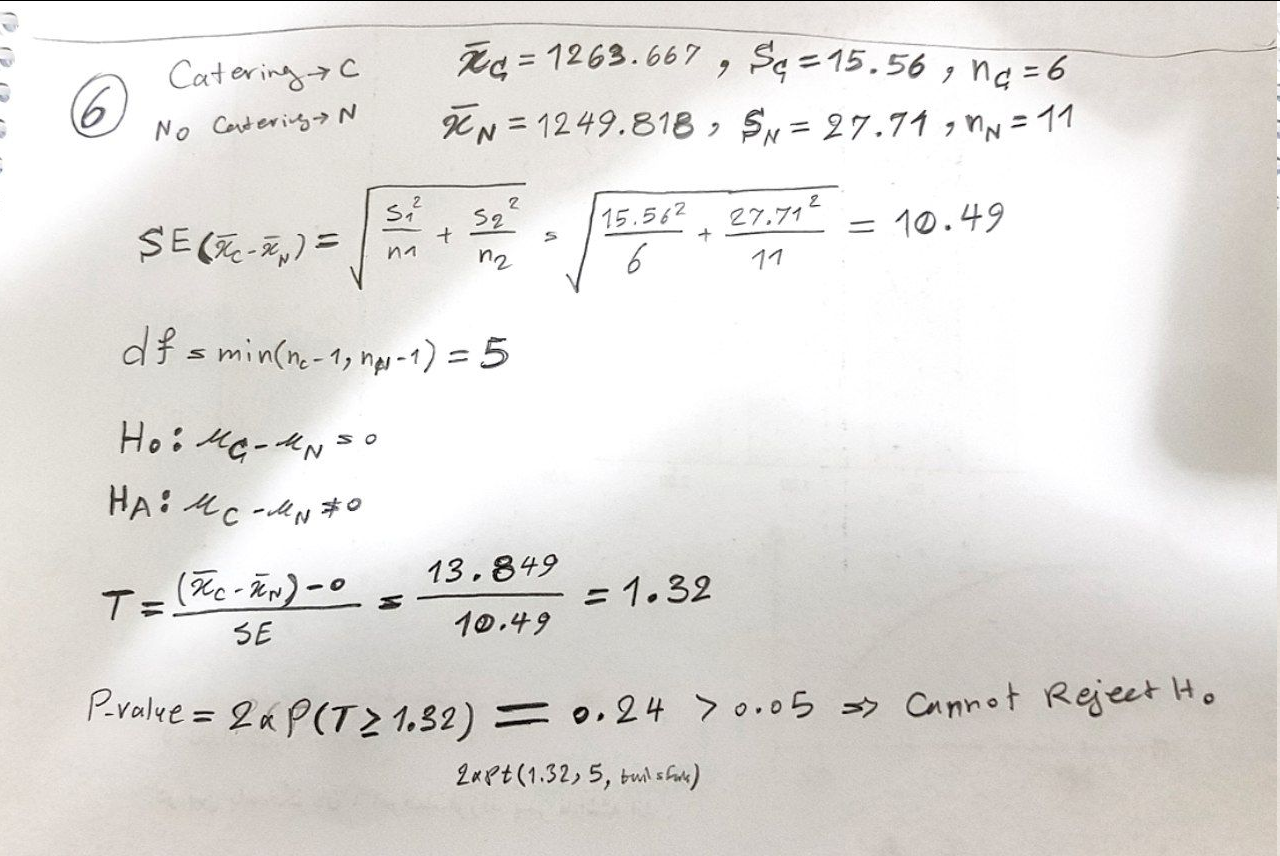 6
Catering → C  x̄_C = 1263.667 , S_C = 15.56 , n_C = 6
No Catering → N  x̄_N = 1249.818 , S_N = 27.71 , n_N = 11
SE(x̄_C - x̄_N) = √(S_1²/n_1 + S_2²/n_2) = √(15.56²/6 + 27.71²/11) = 10.49
df = min(n_C - 1, n_N - 1) = 5
H_0: μ_C - μ_N = 0
H_A: μ_C - μ_N ≠ 0
T = ((x̄_C - x̄_N) - 0)/SE = 13.849/10.49 = 1.32
P-value = 2 × P(T ≥ 1.32) = 0.24 > 0.05 ⇒ Cannot Reject H_0
2×pt(1.32, 5,